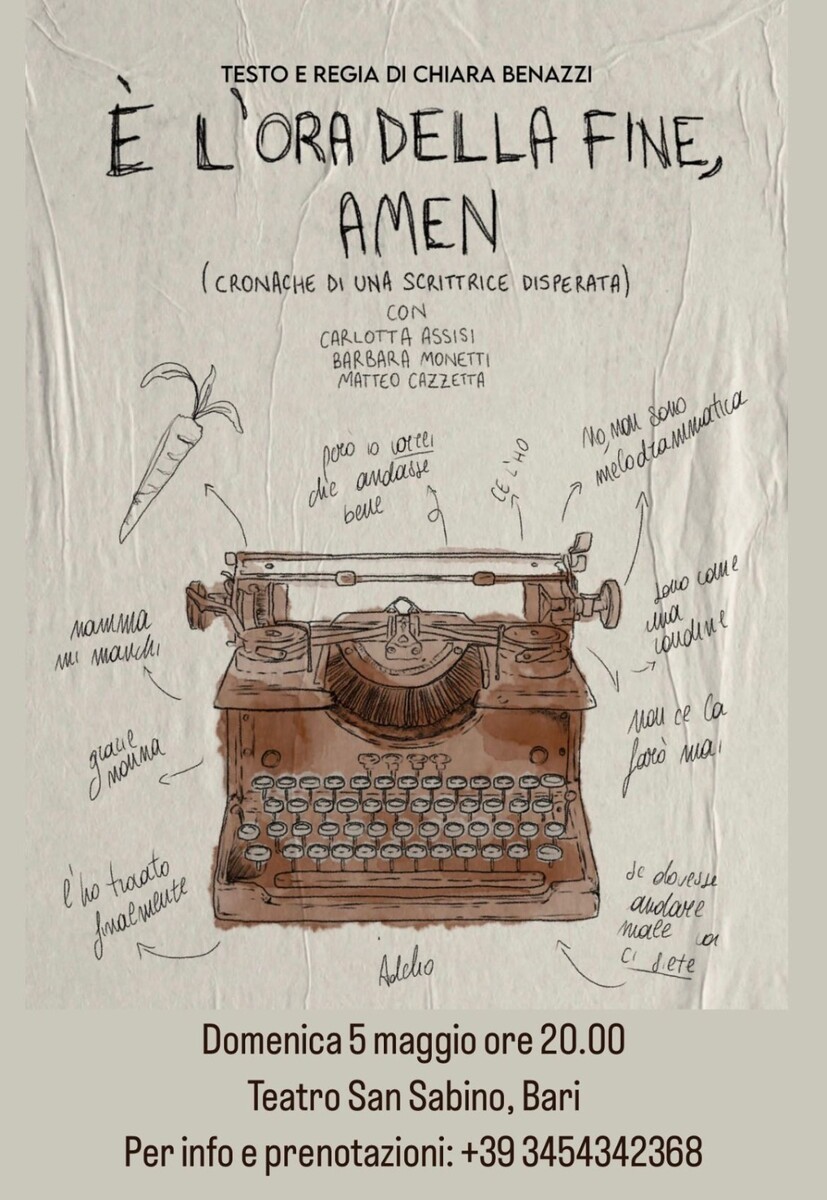 TESTO E REGIA DI CHIARA BENAZZI
È L'ORA DELLA FINE,
AMEN
(CRONACHE DI UNA SCRITTRICE DISPERATA)
CON
CARLOTTA ASSISI
BARBARA MONETTI
MATTEO CAZZETTA
però io vorrei
che andasse
bene
CE L'HO
No, non sono
melodrammatica
mamma
mi manchi
sono come
una
grazie
nonna
non ce la
farò mai
l'ho trovato
finalmente
se dovesse
andare
male voi
ci siete
Domenica 5 maggio ore 20.00
Teatro San Sabino, Bari
Per info e prenotazioni: +39 3454342368